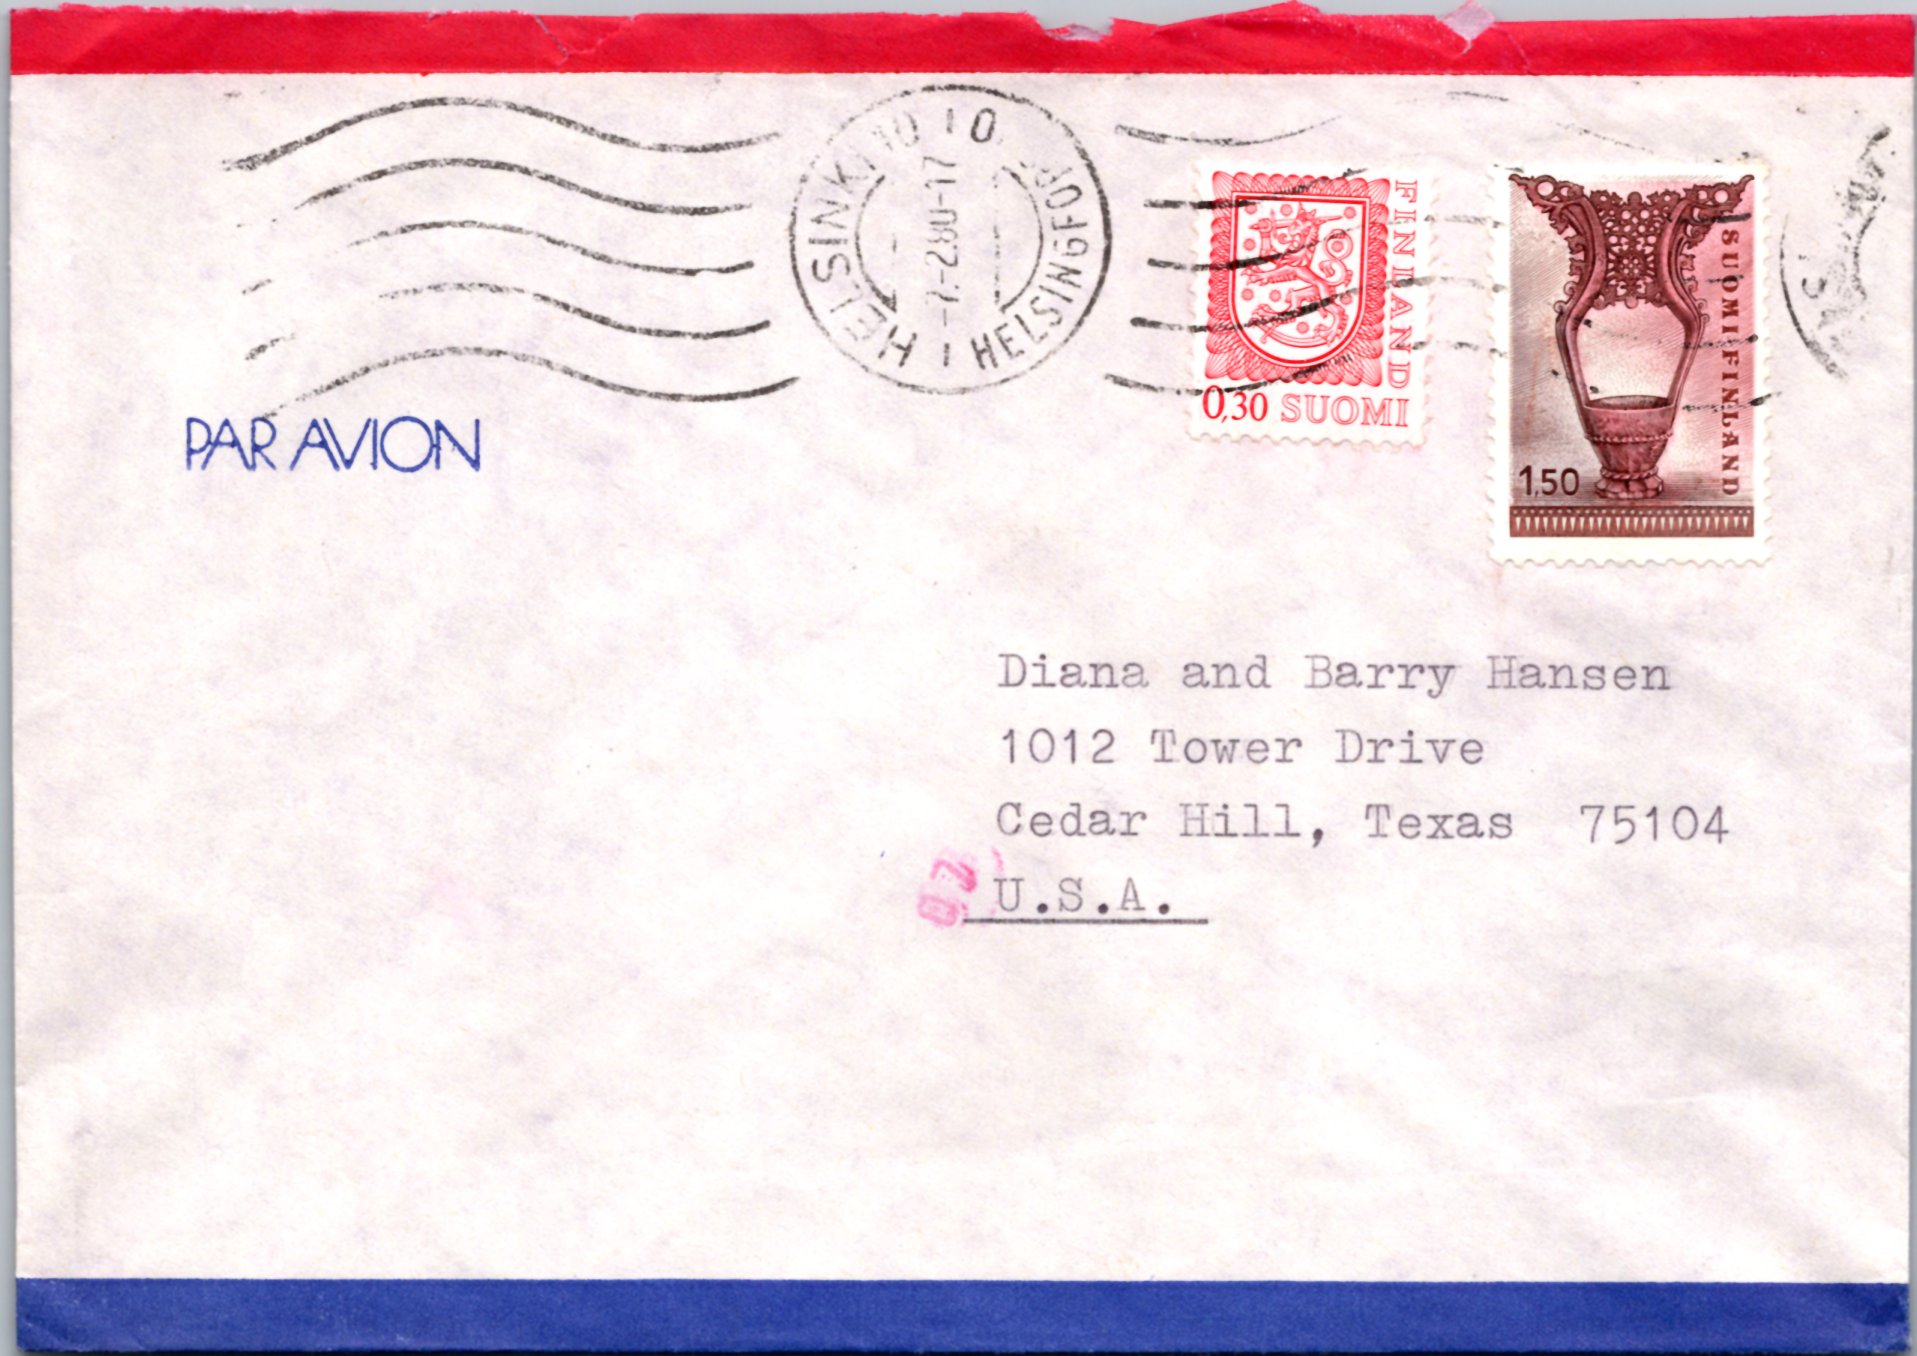 HELSINKI 10 10 HELSINGFORS
7.-2.80-17
FINLAND
0,30 SUOMI
SUOMI FINLAND
1,50
PAR AVION
Diana and Barry Hansen
1012 Tower Drive
Cedar Hill, Texas 75104
U.S.A.